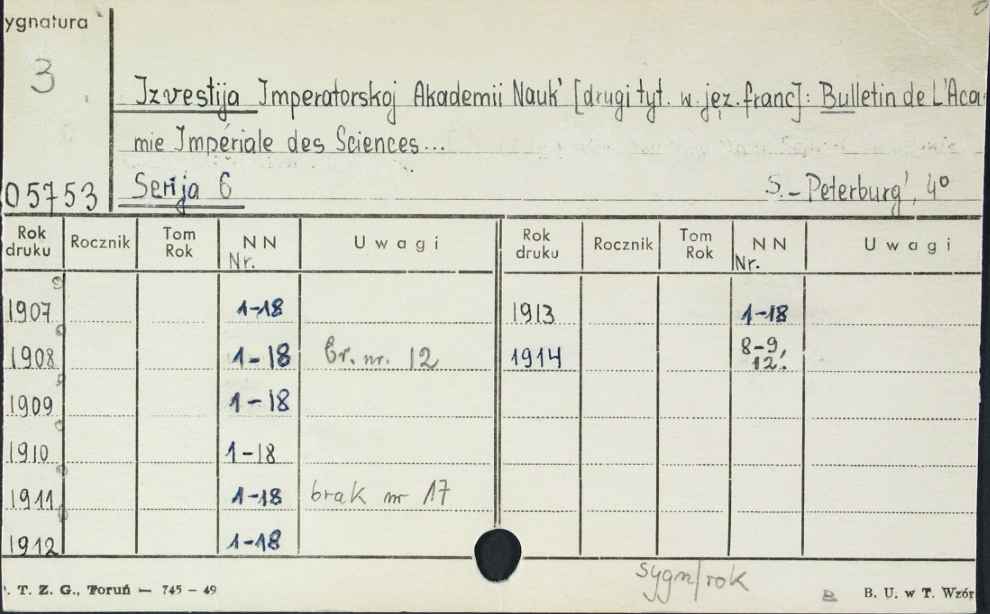 ygnatura
3
Izvestija Imperatorskoj Akademii Nauk' [drugi tyt. w jęz. franc]: Bulletin de L'Aca
mie Impériale des Sciences...
05753 Serija 6 S.-Peterburg', 4°
Rok druku Rocznik Tom Rok NN Nr. Uwagi Rok druku Rocznik Tom Rok NN Nr. Uwagi
1907 1-18 1913 1-18
1908 1-18 br. nr. 12 1914 8-9, 12.
1909 1-18
1910 1-18
1911 1-18 brak nr 17
1912 1-18
sygn/rok
T. Z. G., Toruń — 745 - 49 B. U. w T. Wzór